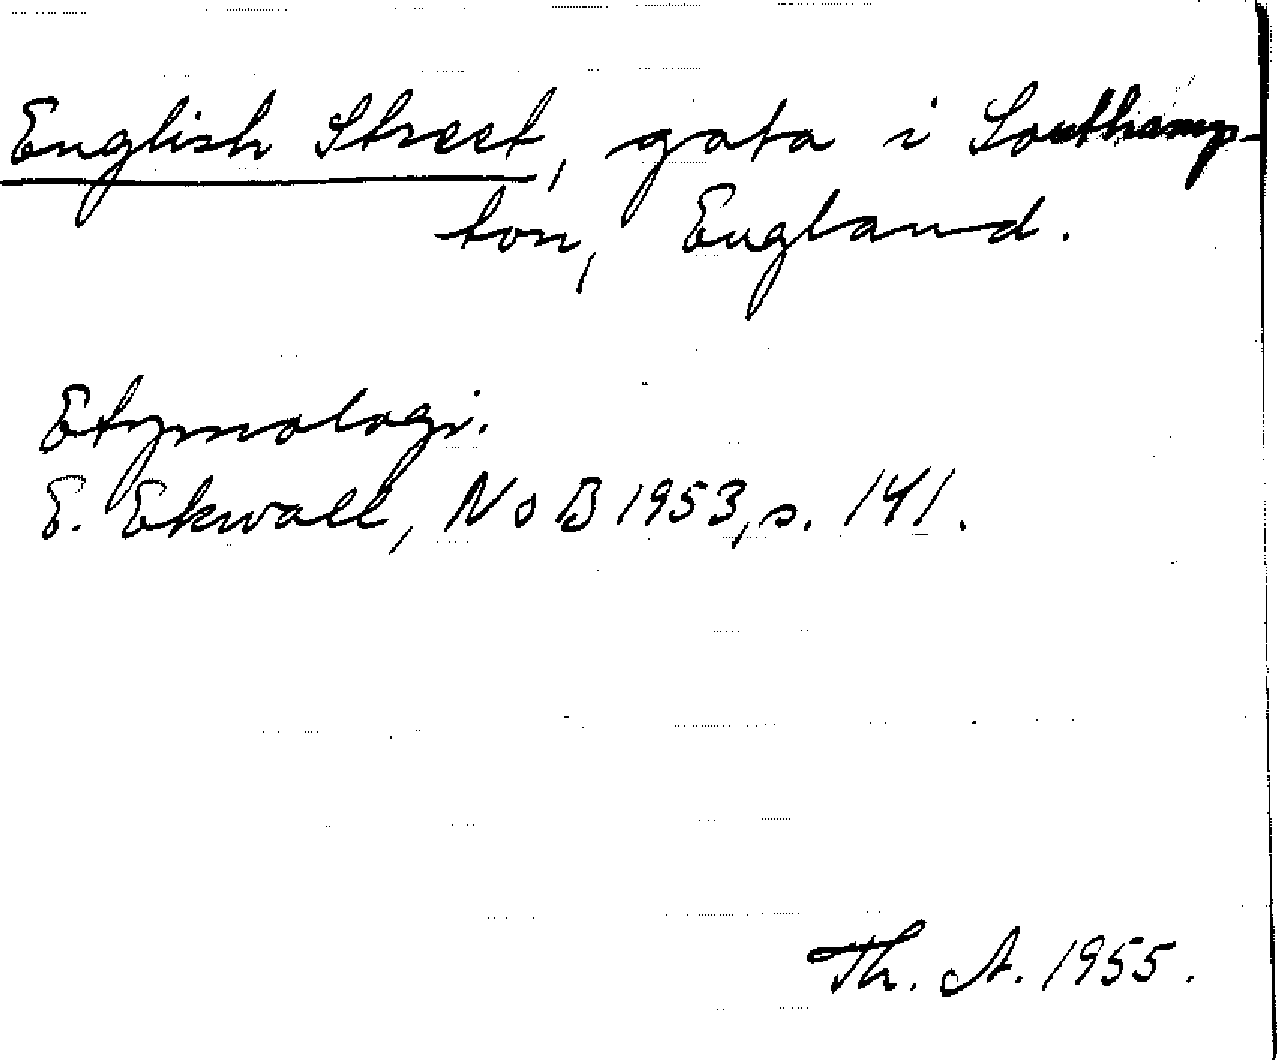 English Street, gata i Southamp-
ton, England.
Etymologi.
E. Ekwall, NoB 1953, s. 141.
Th. A. 1955.